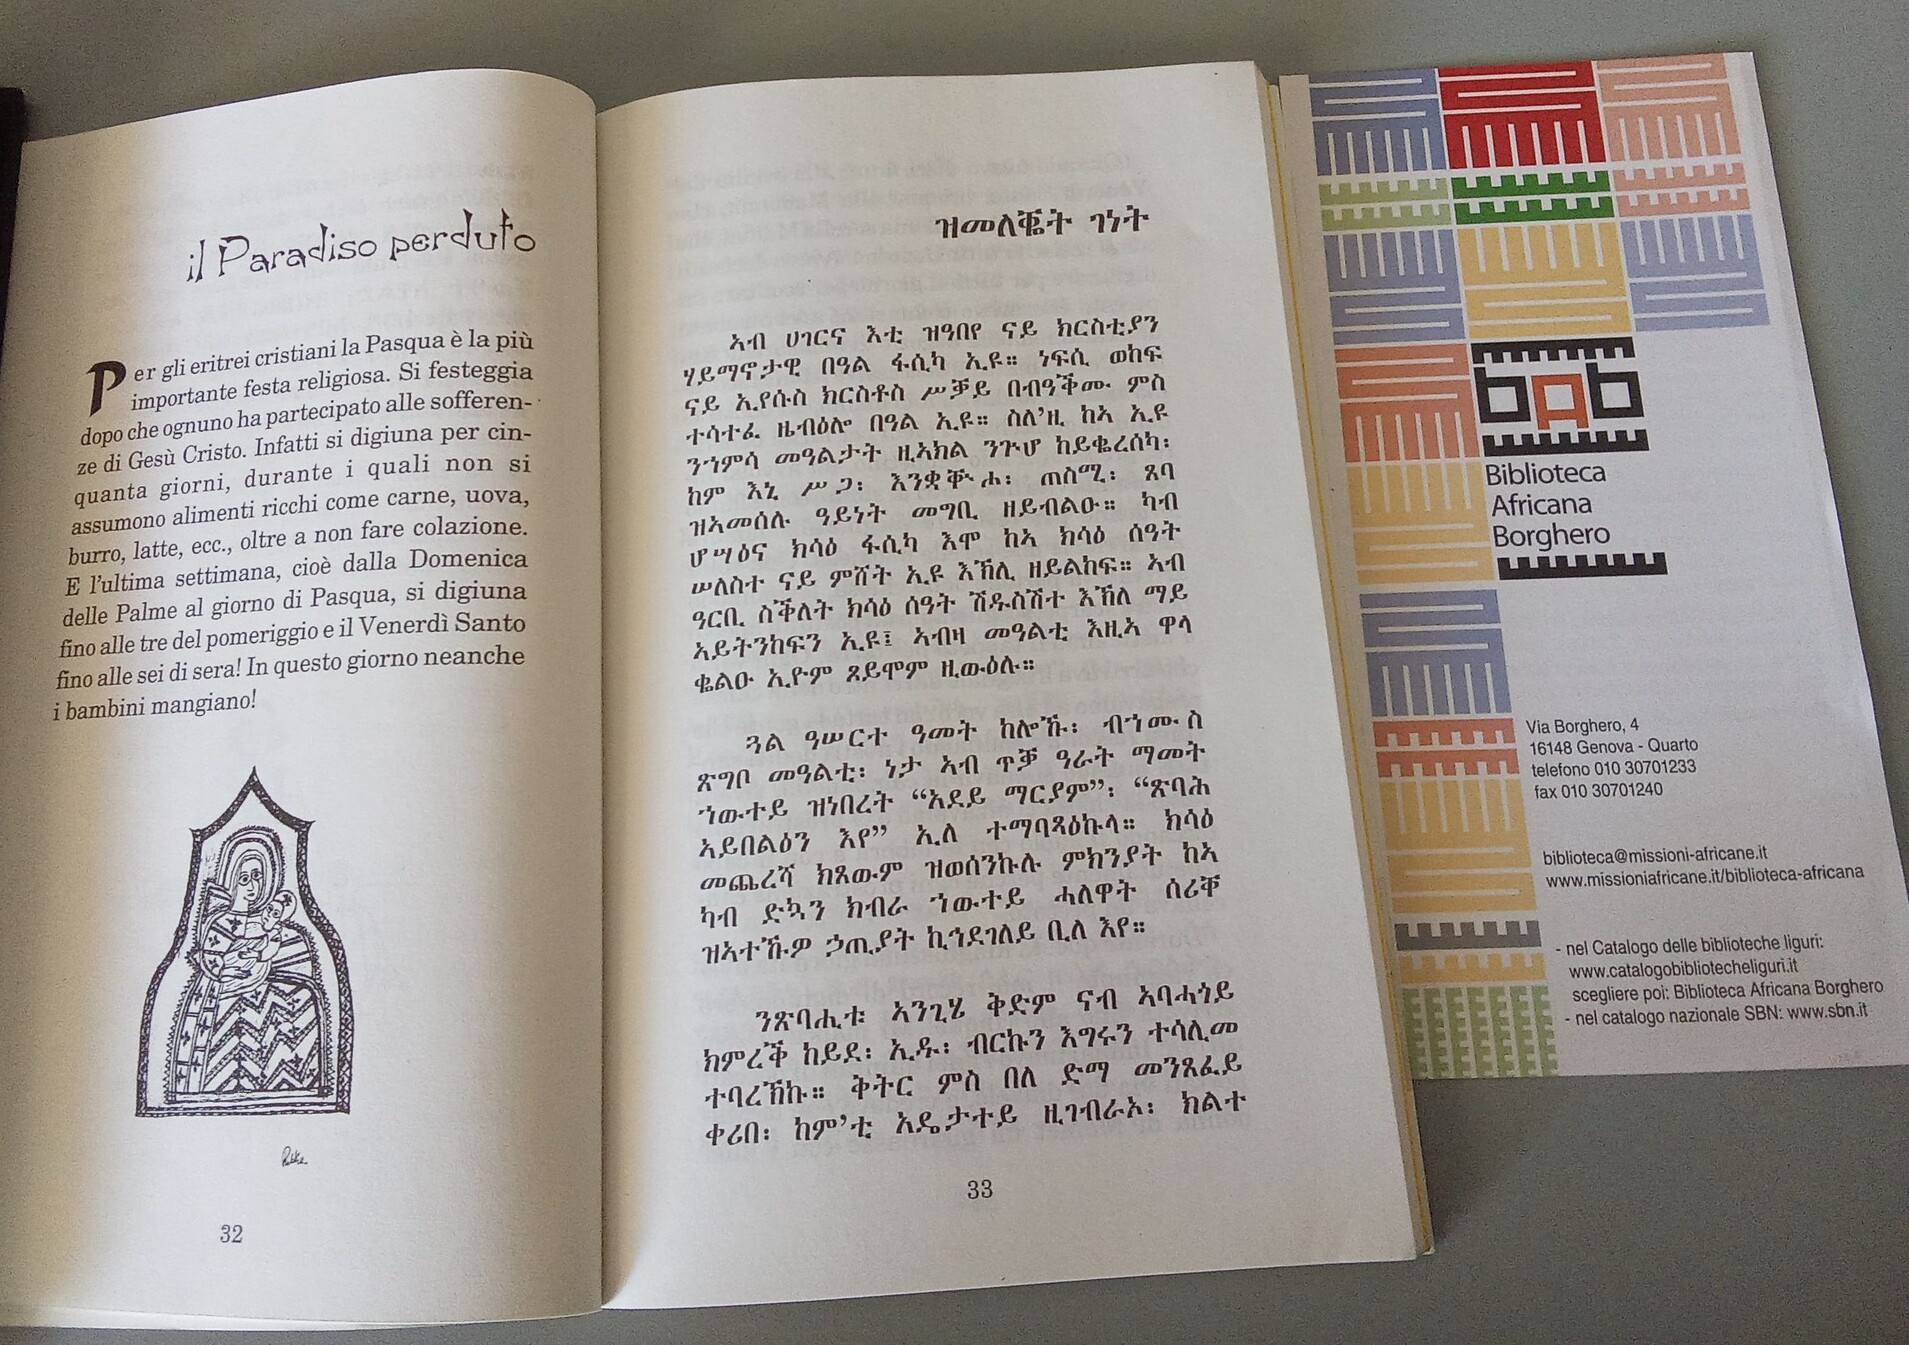 il Paradiso perduto
Per gli eritrei cristiani la Pasqua è la più
importante festa religiosa. Si festeggia
dopo che ognuno ha partecipato alle sofferen-
ze di Gesù Cristo. Infatti si digiuna per cin-
quanta giorni, durante i quali non si
assumono alimenti ricchi come carne, uova,
burro, latte, ecc., oltre a non fare colazione.
E l'ultima settimana, cioè dalla Domenica
delle Palme al giorno di Pasqua, si digiuna
fino alle tre del pomeriggio e il Venerdì Santo
fino alle sei di sera! In questo giorno neanche
i bambini mangiano!
32
ዝመለቘት ገነት
ኣብ ሀገርና እቲ ዝዓበየ ናይ ክርስቲያን
ሃይማኖታዊ በዓል ፋሲካ ኢዩ። ነፍሲ ወከፍ
ናይ ኢየሱስ ክርስቶስ ሥቓይ በብዓቕሙ ምስ
ተሳተፈ ዜብዕሎ በዓል ኢዩ። ስለ'ዚ ከኣ ኢዩ
ንኀምሳ መዓልታት ዚኣክል ንጕሆ ከይቈረሰካ፡
ከም እኒ ሥጋ፡ እንቋቝሖ፡ ጠስሚ፡ ጸባ
ዝኣመሰሉ ዓይነት መግቢ ዘይብልዑ። ካብ
ሆሣዕና ክሳዕ ፋሲካ እሞ ከኣ ክሳዕ ሰዓት
ሠለስተ ናይ ምሸት ኢዩ እኽሊ ዘይልከፍ። ኣብ
ዓርቢ ስቕለት ክሳዕ ሰዓት ሽዱስሽተ እኽለ ማይ
ኣይትንከፍን ኢዩ፤ ኣብዛ መዓልቲ እዚኣ ዋላ
ቈልዑ ኢዮም ጾይሞም ዚውዕሉ።
ጓል ዓሠርተ ዓመት ከሎኹ፡ ብኀሙስ
ጽግቦ መዓልቲ፡ ነታ ኣብ ጥቓ ዓራት ማመት
ኀውተይ ዝነበረት “ኣደይ ማርያም”፡ “ጽባሕ
ኣይበልዕን እየ” ኢለ ተማባጻዕኩላ። ክሳዕ
መጨረሻ ክጸውም ዝወሰንኩሉ ምክንያት ከኣ
ካብ ድኳን ክብራ ኀውተይ ሓለዋት ሰሪቐ
ዝኣተኹዎ ኃጢያት ኪኅደገለይ ቢለ እየ።
ንጽባሒቱ ኣንጊሄ ቅድም ናብ ኣባሓጎይ
ክምረቕ ከይደ፡ ኢዱ፡ ብርኩን እግሩን ተሳሊመ
ተባረኽኩ። ቅትር ምስ በለ ድማ መንጸፈይ
ቀሪበ፡ ከም'ቲ ኣዴታተይ ዚገብራኦ፡ ክልተ
33
bAb
Biblioteca
Africana
Borghero
Via Borghero, 4
16148 Genova - Quarto
telefono 010 30701233
fax 010 30701240
biblioteca@missioni-africane.it
www.missioniafricane.it/biblioteca-africana
- nel Catalogo delle biblioteche liguri:
www.catalogobibliotecheliguri.it
scegliere poi: Biblioteca Africana Borghero
- nel catalogo nazionale SBN: www.sbn.it